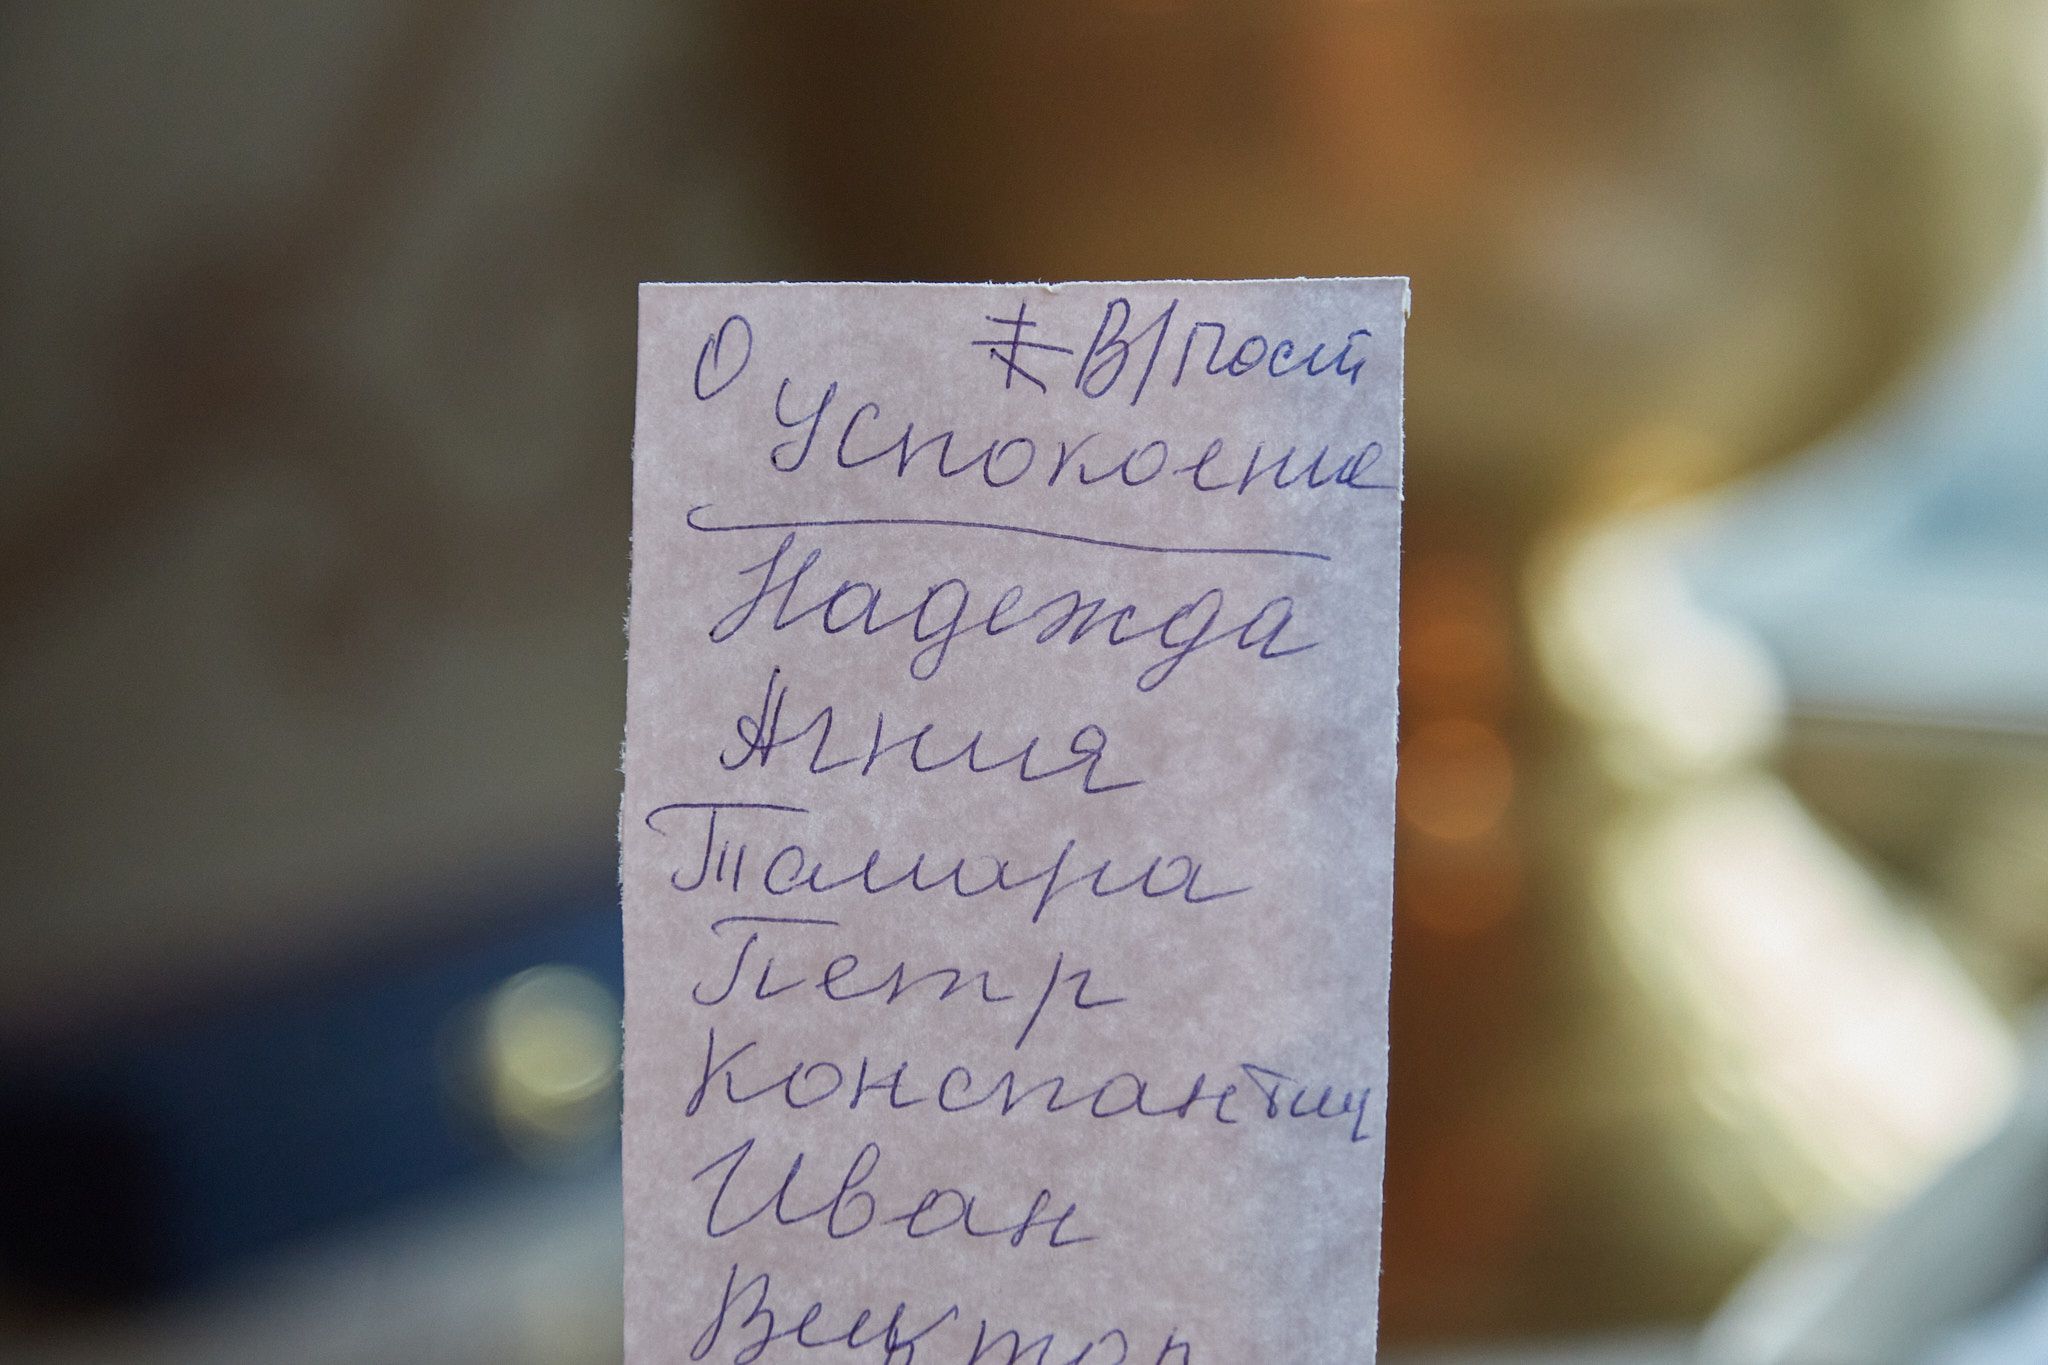 О В/пост
Успокоение
Надежда
Агния
Тамара
Петр
Константин
Иван
Виктор